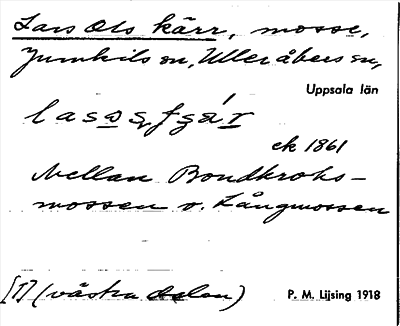 Lars Ols kärr, mosse,
Jumkils sn, Ulleråkers sn,
Uppsala län
ek 1861
Mellan Bondkroks-
mossen o. Långmossen
[1] (västra delen)
P. M. Lijsing 1918